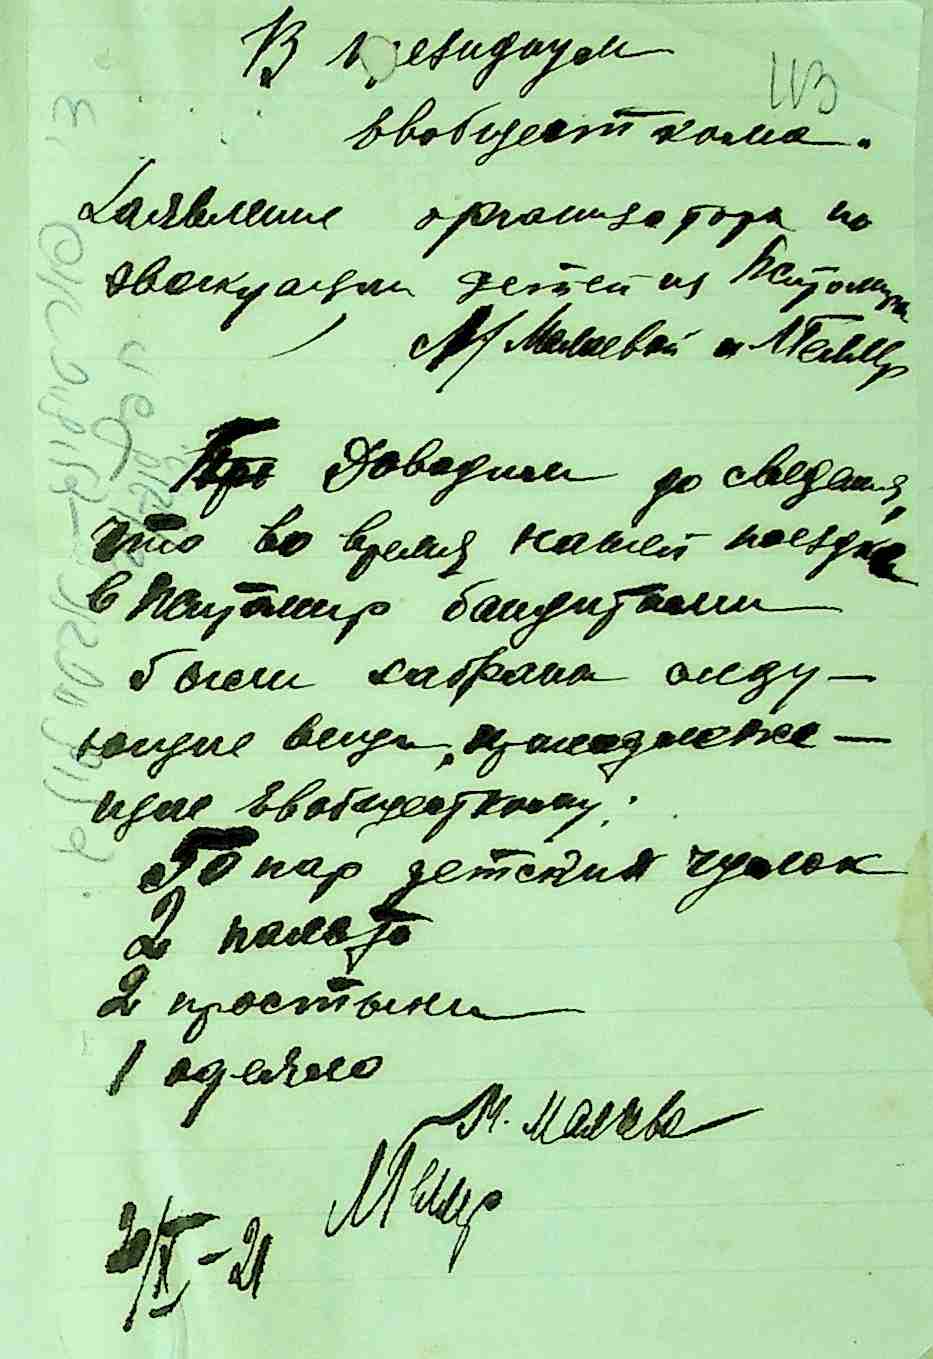 В президиум
113
Евобщесткома.
Заявление организатора по
эвакуации детей из Житомира
М. Маляевой и М Геллер
При Доводим до сведения,
что во время нашей поездки
в Житомир бандитами
были забраны следу-
ющие вещи, принадлежа-
щие Евобщесткому:
50 пар детский чулок
2 пальто
2 простыни
1 одеяло
М. Маляева
МГеллер
21